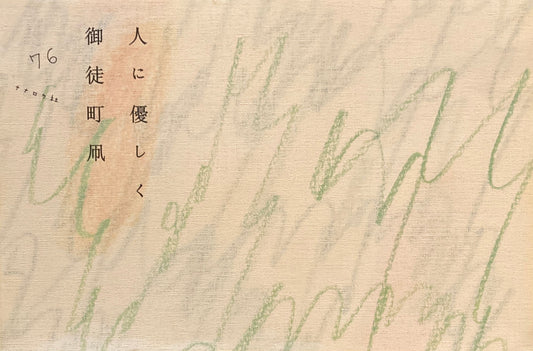 人に優しく
御徒町凧
76
ナナロク社